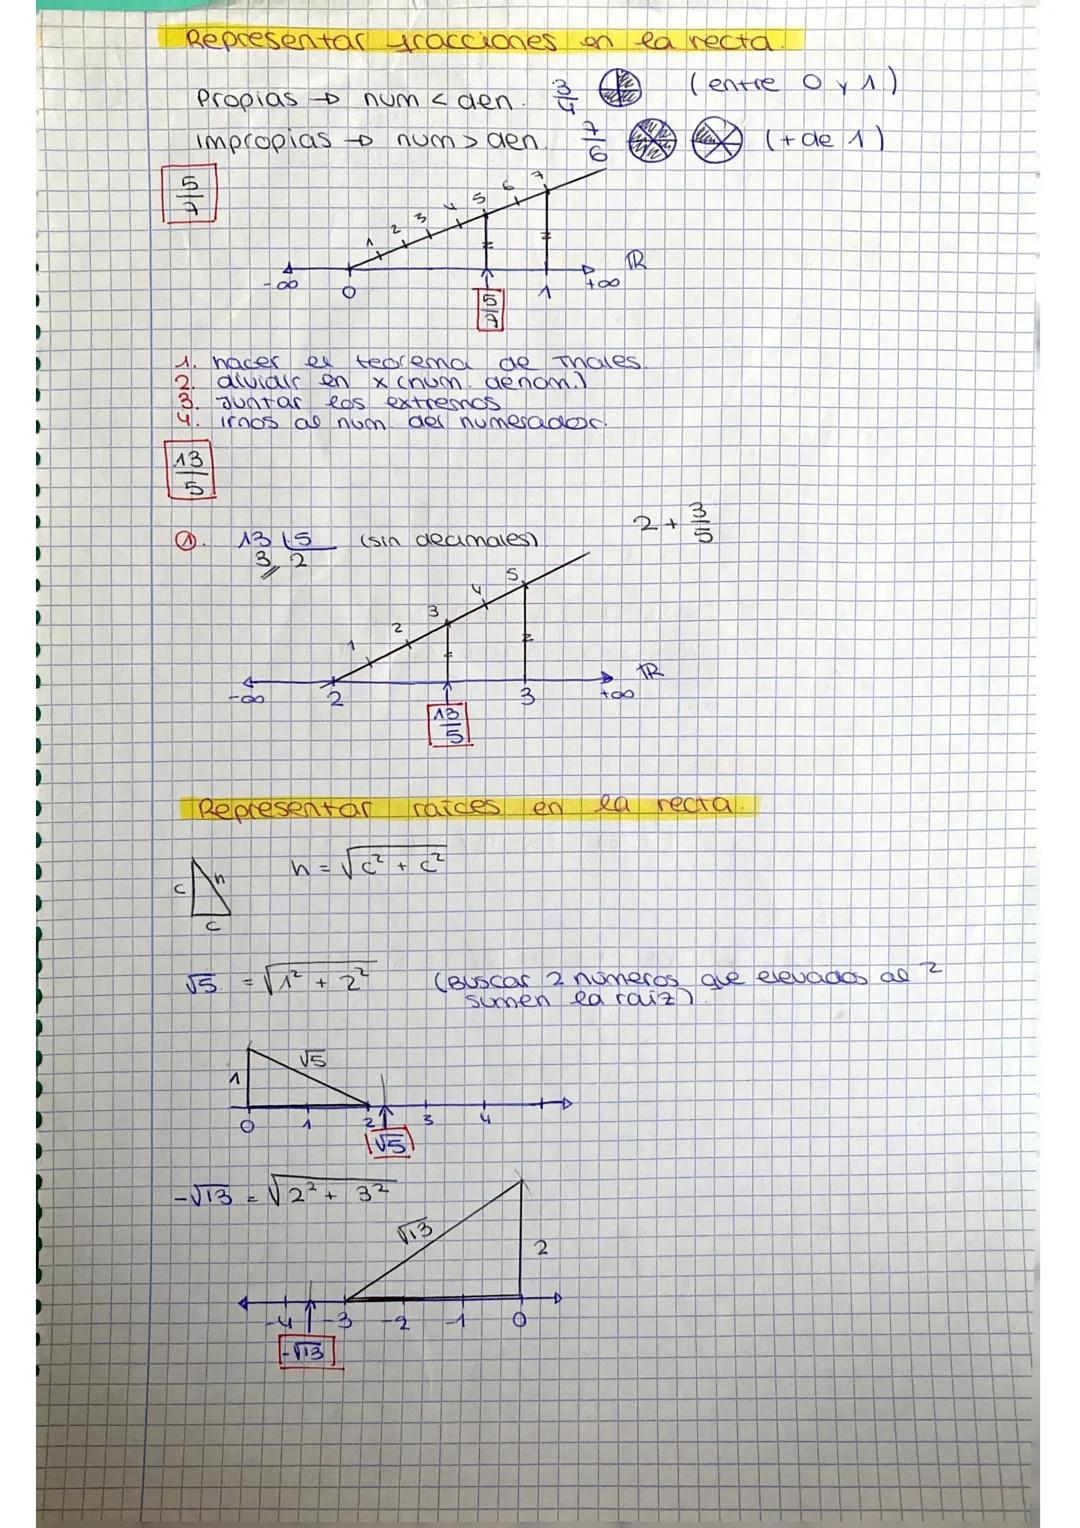 Representar fracciones en la recta.
Propias → num < den. 3/4 (entre 0 y 1)
Impropias → num > den. 7/6 (+ de 1)
5/7
1 2 3 4 5 6 7
-∞ 0 5/7 1 +∞ ℝ
1. hacer el teorema de Thales.
2. dividir en x (num. denom.)
3. Juntar los extremos
4. irnos al num. del numerador.
13/5
①. 13 | 5 (sin decimales) 2 + 3/5
3 2
1 2 3 4 5
-∞ 2 13/5 3 +∞ ℝ
Representar raíces en la recta.
c h h = √c² + c²
c
√5 = √1² + 2² (Buscar 2 números que elevados al 2
sumen la raiz).
1 √5
0 1 2 √5 3 4
-√13 = √2² + 3²
√13 2
-4 -√13 -3 -2 -1 0